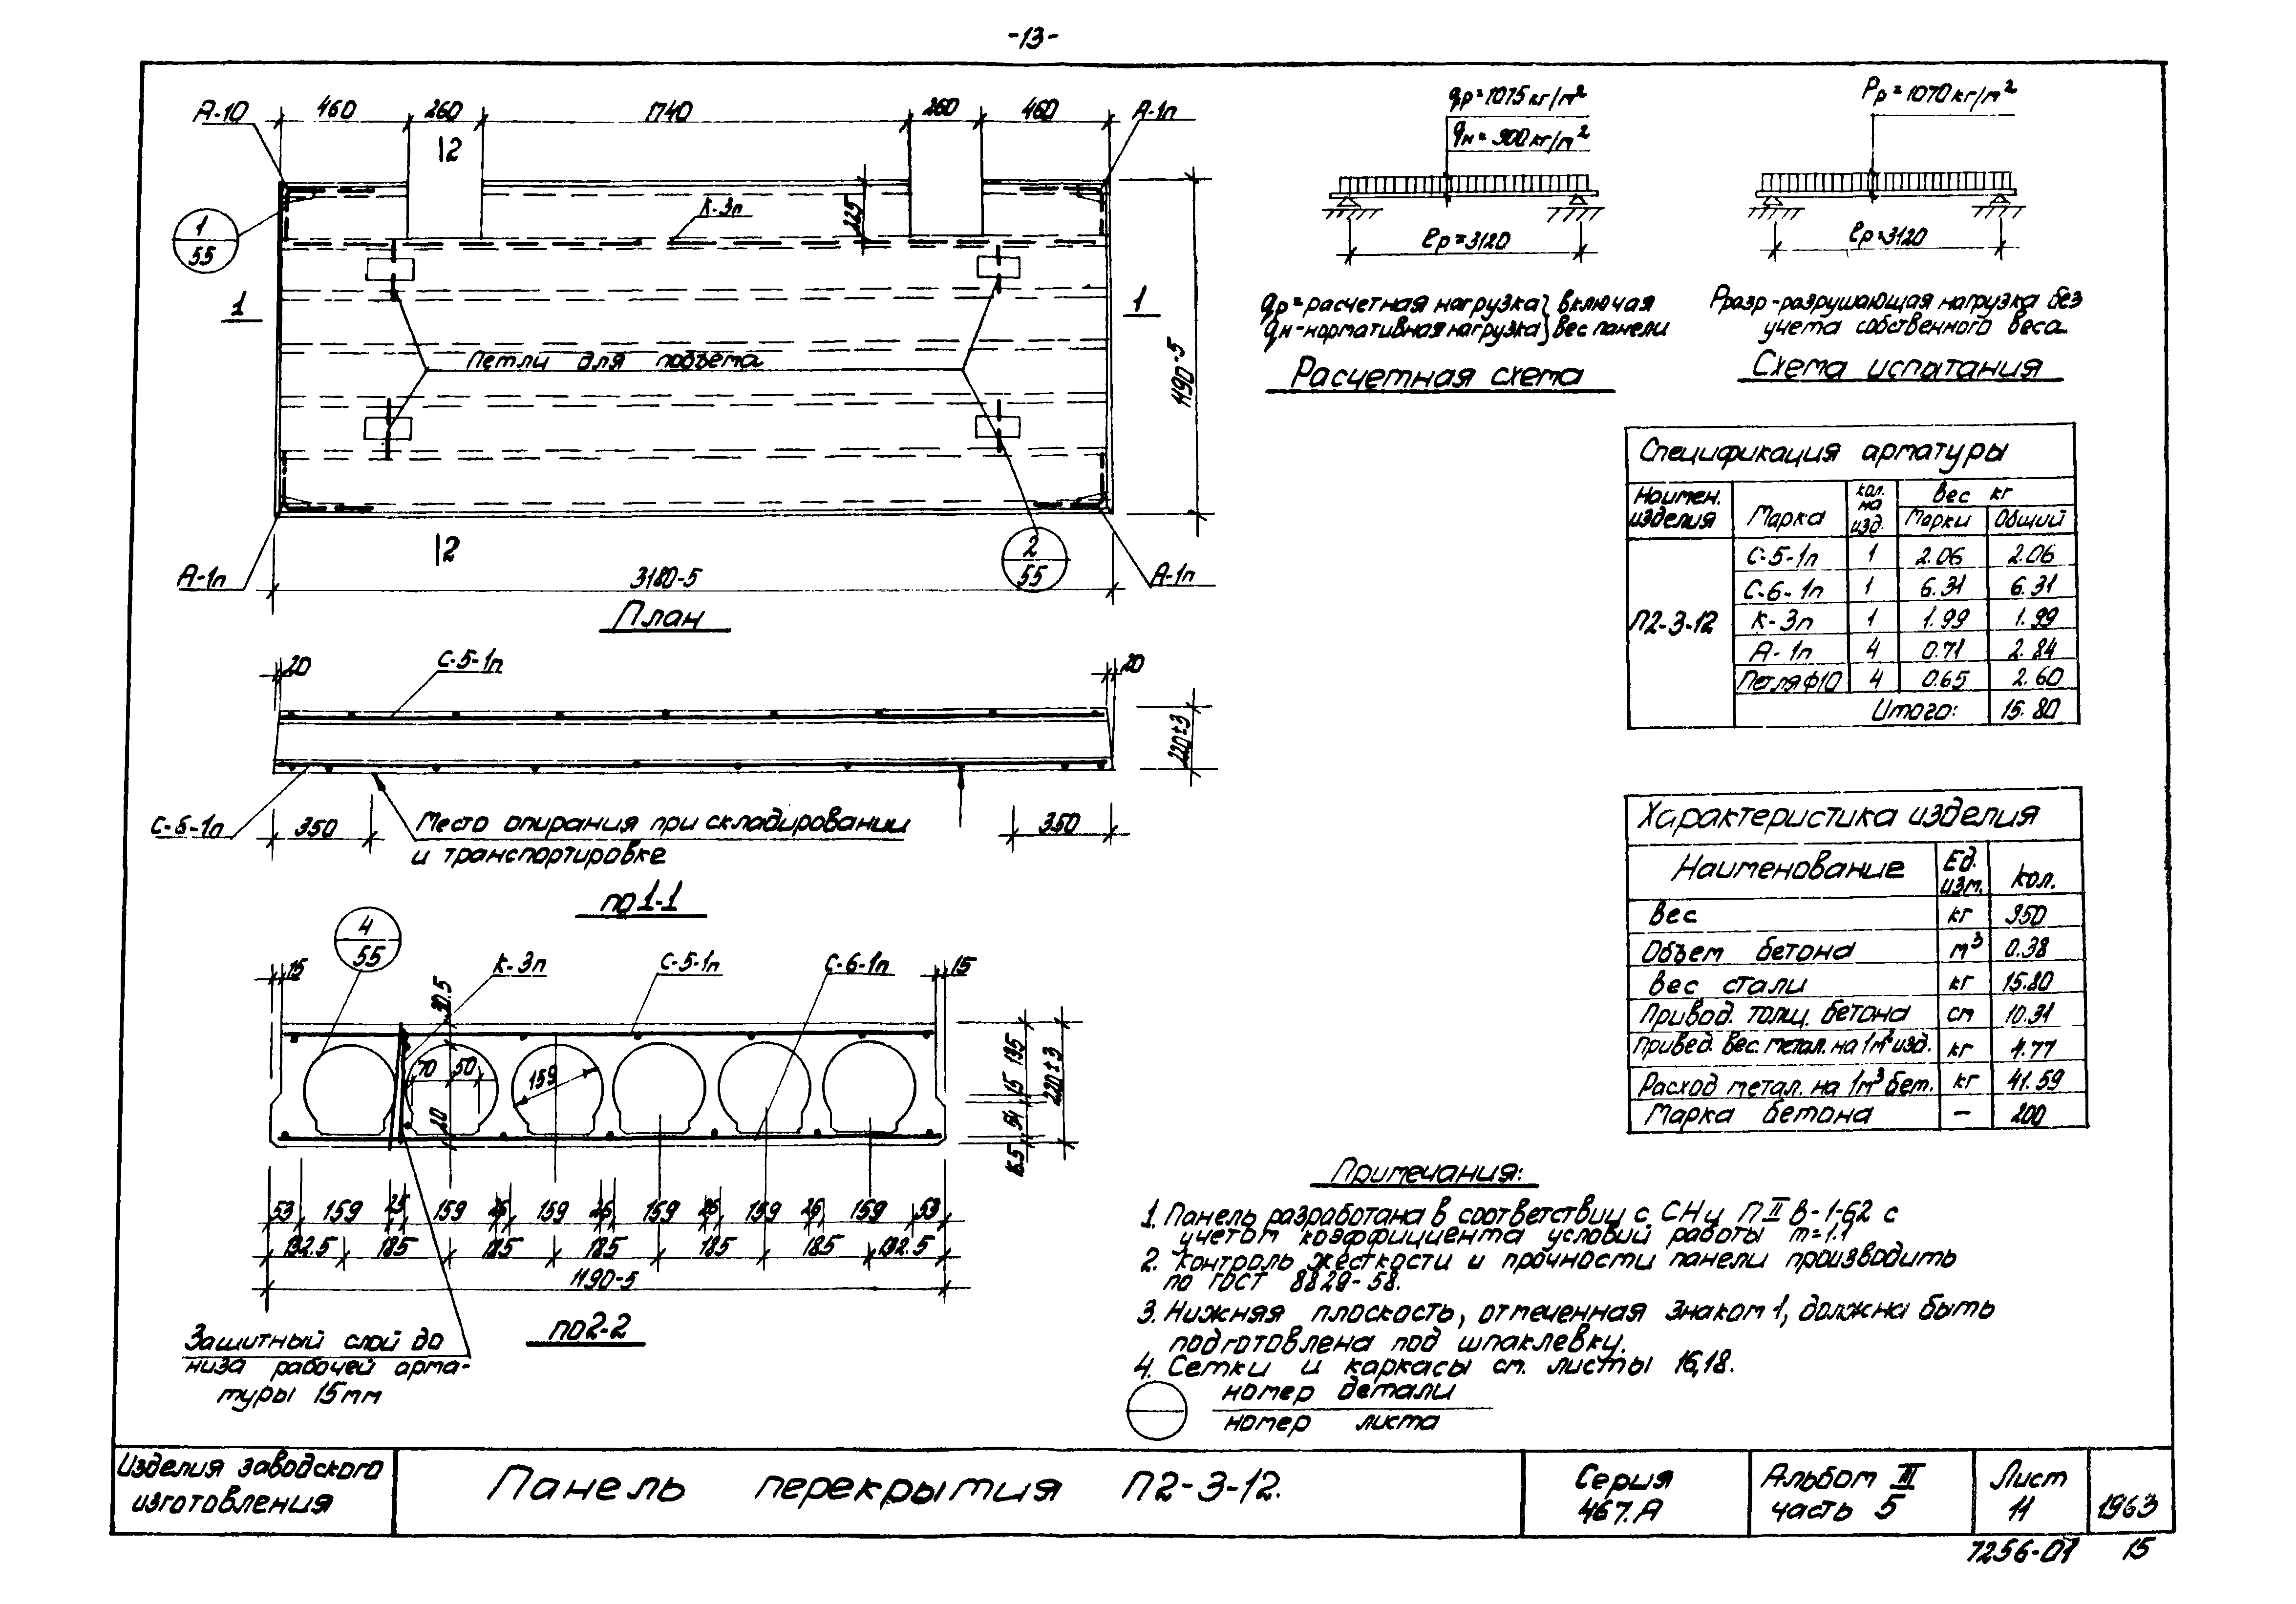 -13-
А-10 460 260 1740 260 460 А-1п
12
К-3п
225
1
55
1 1
Петли для подъема
1190-5
12
2
55
А-1п 3180-5 А-1п
План
20 С-5-1п 20
220±3
С-6-1п 350 Место опирания при складировании 350
и транспортировке
по 1-1
4
55
15 К-3п С-5-1п С-6-1п 15
30.5
70 50 159
20
135
15
54
16.5
220±3
53 159 25 159 26 159 26 159 26 159 26 159 53
132.5 185 185 185 185 185 132.5
1190-5
Защитный слой до
низа рабочей арма-
туры 15мм
по 2-2
qр=1075кг/м²
qн=900кг/м²
ℓр=3120
qр=расчетная нагрузка } включая
qн-нормативная нагрузка } вес панели
Расчетная схема
Рр=1070кг/м²
ℓр=3120
Рразр-разрушающая нагрузка без
учета собственного веса
Схема испытания
Спецификация арматуры
Наимен. изделия Марка кол. на изд. Вес кг
Марки Общий
П2-3-12
С-5-1п 1 2.06 2.06
С-6-1п 1 6.31 6.31
К-3п 1 1.99 1.99
А-1п 4 0.71 2.84
Петля ф10 4 0.65 2.60
Итого: 15.80
Характеристика изделия
Наименование Ед. изм. Кол.
Вес кг 950
Объем бетона м³ 0.38
Вес стали кг 15.80
Привод. толщ. бетона см 10.31
Привед. вес. метал. на 1м² изд. кг 4.77
Расход метал. на 1м³ бет. кг 41.59
Марка бетона — 200
Примечания:
1. Панель разработана в соответствии с СНи П II В-1-62 с
учетом коэффициента условий работы m=1.1
2. Контроль жесткости и прочности панели производить
по ГОСТ 8829-58.
3. Нижняя плоскость, отмеченная знаком 1, должна быть
подготовлена под шпаклевку.
4. Сетки и каркасы см. листы 16,18.
номер детали
номер листа
Изделия заводского
изготовления
Панель перекрытия П2-3-12.
Серия
467.А
Альбом III
часть 5
Лист
11
1963
7256-01 15